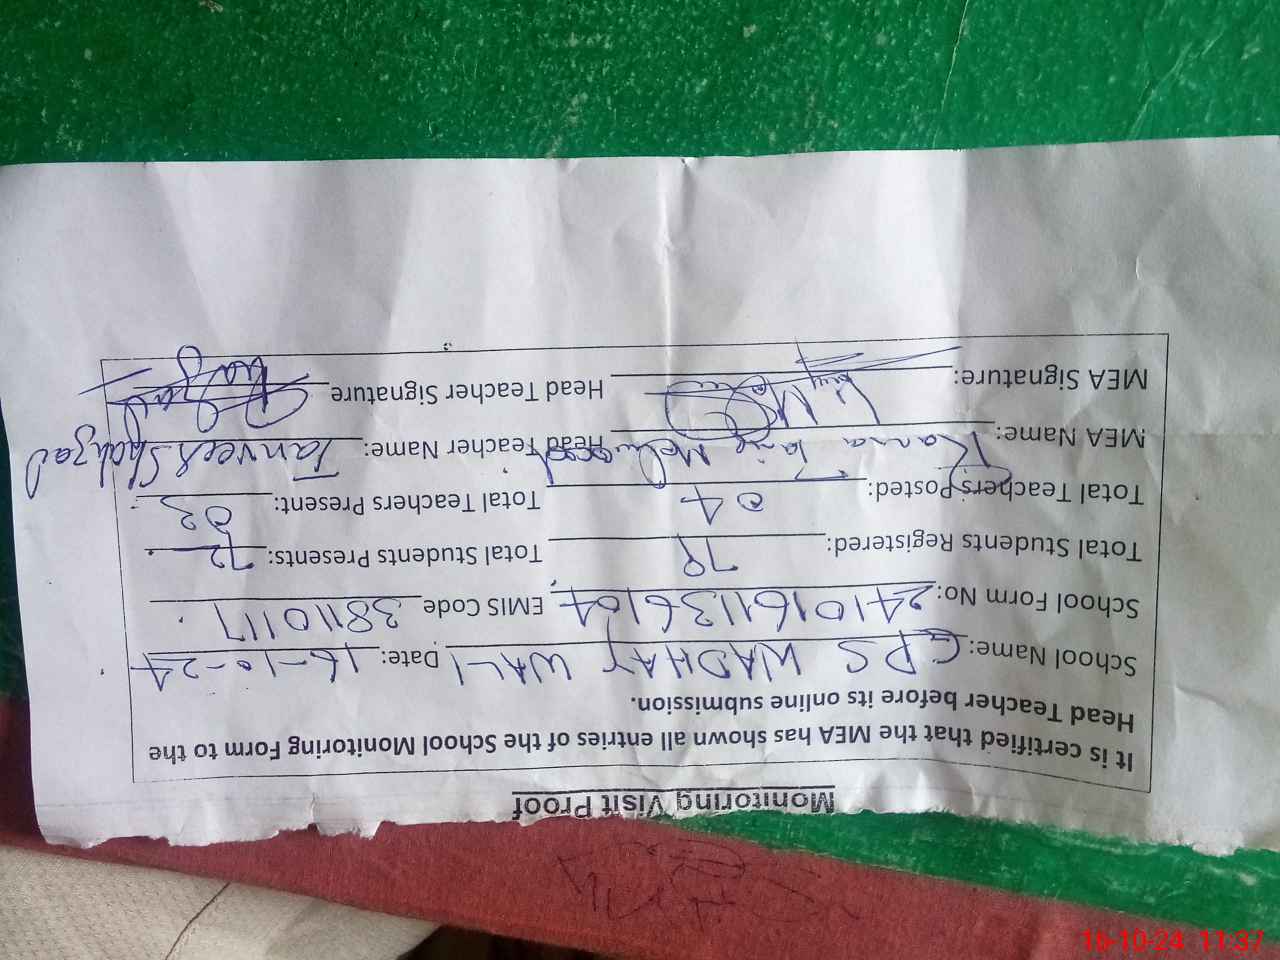 Monitoring Visit Proof
It is certified that the MEA has shown all entries of the School Monitoring Form to the
Head Teacher before its online submission.
School Name: GPS WADHAY WALI Date: 16-10-24
School Form No: 2410161136104 EMIS Code 38110117
Total Students Registered: 78 Total Students Presents: 72
Total Teachers Posted: 04 Total Teachers Present: 03
MEA Name: Rana Head Teacher Name: Tanveer Shahzad
MEA Signature: Head Teacher Signature
16-10-24 11:37